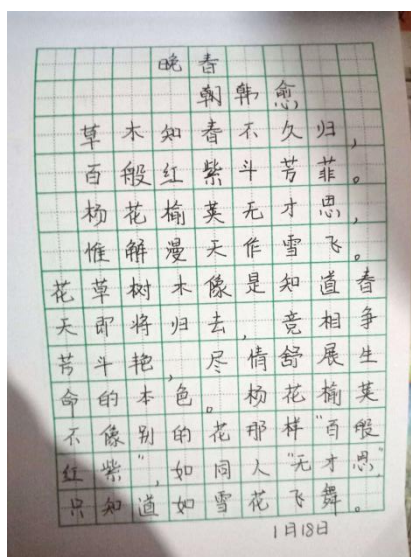 晚春
朝韩愈
草木知春不久归,
百般红紫斗芳菲。
杨花榆荚无才思,
惟解漫天作雪飞。
花草树木像是知道春
天即将归去,竞相争
芳斗艳,尽情舒展生
命的本色。杨花榆荚
不像别的花那样“百般
红紫”,如同人“无才思”,
只知道如雪花飞舞。
1月18日